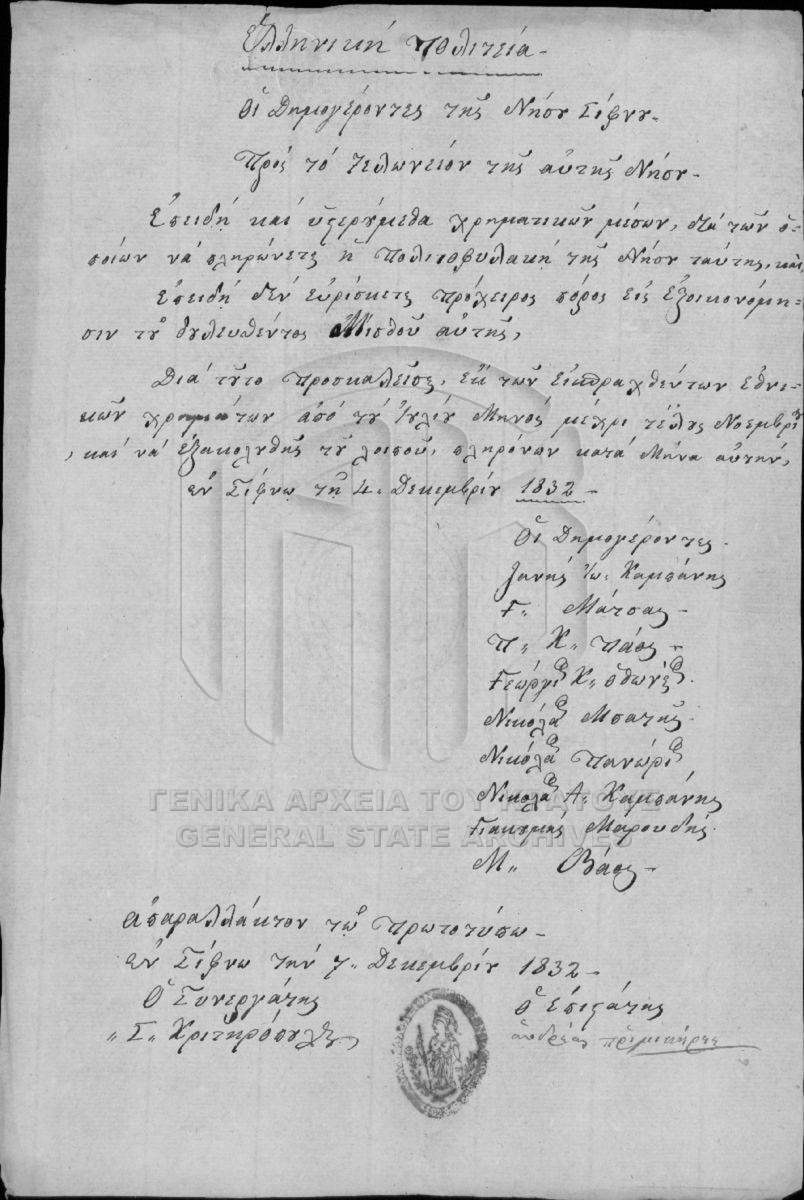 Ἑλληνικὴ Πολιτεία.
Οἱ Δημογέροντες τῆς Νήσου Σίφνου.
Πρὸς τὸ Τελωνεῖον τῆς αὐτῆς Νήσου.
Ἐπειδὴ καὶ ὑστερούμεθα χρηματικῶν μέσων, διὰ τῶν ὁ-
ποίων νὰ πληρώνετε ἡ Πολιτοφυλακὴ τῆς Νήσου ταύτης, καὶ
Ἐπειδὴ δὲν εὑρίσκετε πρόχειρος πόρος εἰς ἐξοικονόμη-
σιν τοῦ δουλευθέντος Μισθοῦ αὐτῆς,
Διὰ τοῦτο προσκαλεῖσε, ἐκ τῶν εἰσπραχθέντων ἐθνι-
κῶν χρημάτων ἀπὸ τοῦ Ἰουλίου Μηνὸς μέχρι τέλους Νοεμβρίου
, καὶ νὰ ἐξακολουθῇς τοῦ λοιποῦ, πληρόνων κατὰ Μῆνα αὐτήν,
ἐν Σίφνῳ τῇ 4. Δεκεμβρίου 1832 -
Οἱ Δημογέροντες.
Ζανῆς Ἰω. Καμπάνης
Γ.. Μάτσας -
Π.. Κ..
Γεώργιος Κ..
Νικόλαος Μπατῆς.
Νικόλαος Πανώριος
Νικόλαος Α. Καμπάνης
Μαρουδῆς.
Μ.. Βάος -
ΓΕΝΙΚΑ ΑΡΧΕΙΑ ΤΟΥ ΚΡΑΤΟΥΣ
GENERAL STATE ARCHIVES
ἀπαράλλακτον τῷ Πρωτοτύπῳ -
ἐν Σίφνῳ τὴν 7. Δεκεμβρίου 1832 -
Ὁ Συνεργάτης
Ὁ Ἐπιστάτης
,, Σ,, Κριτηρόπουλος
ἀνδρέας πριμικήρης